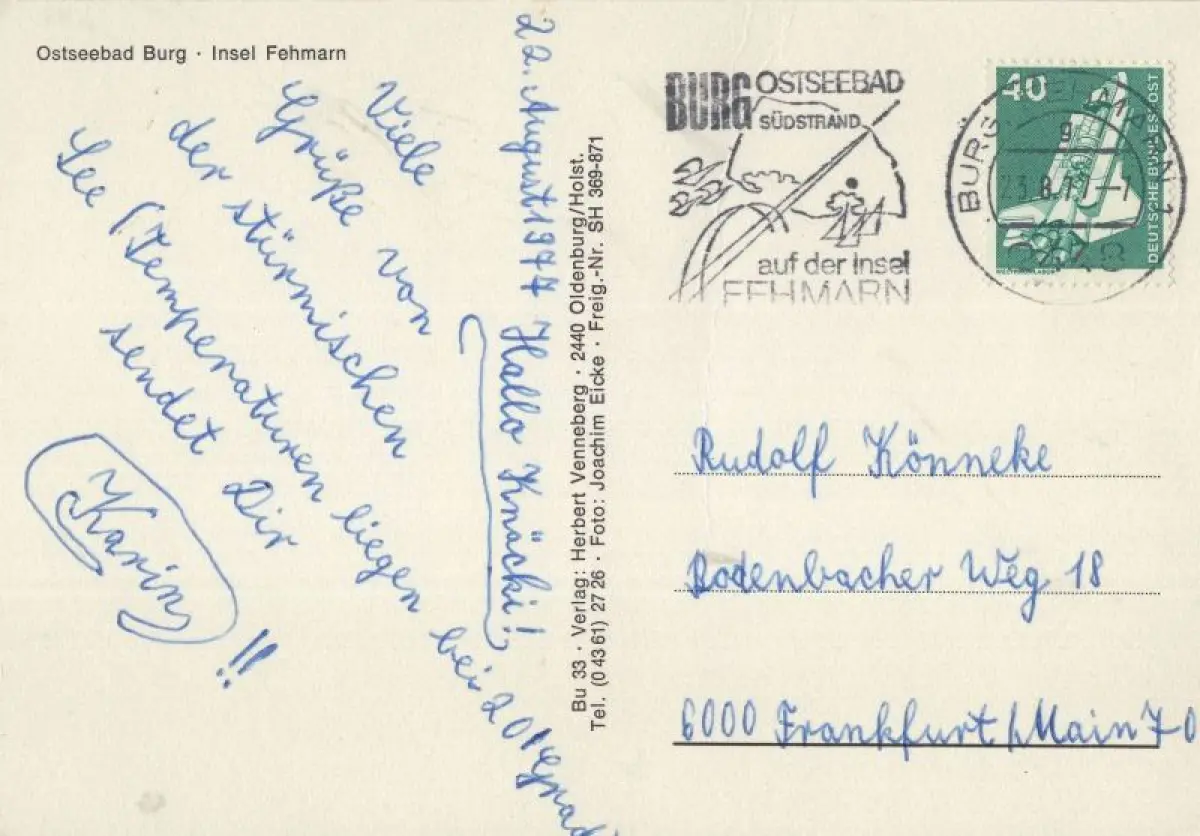 Ostseebad Burg · Insel Fehmarn
22. August 1977
Hallo Knäcki!
Viele
Grüße von
der stürmischen
See (Temperaturen liegen bei 20 Grad
sendet Dir
Karin
!!
Bu 33 · Verlag: Herbert Venneberg · 2440 Oldenburg/Holst.
Tel. (0 43 61) 27 26 · Foto: Joachim Eicke · Freig.-Nr. SH 369-871
BURG OSTSEEBAD
SÜDSTRAND
auf der Insel
FEHMARN
40
DEUTSCHE BUNDESPOST
BURG
Rudolf Könneke
Bodenbacher Weg 18
6000 Frankfurt/Main 70